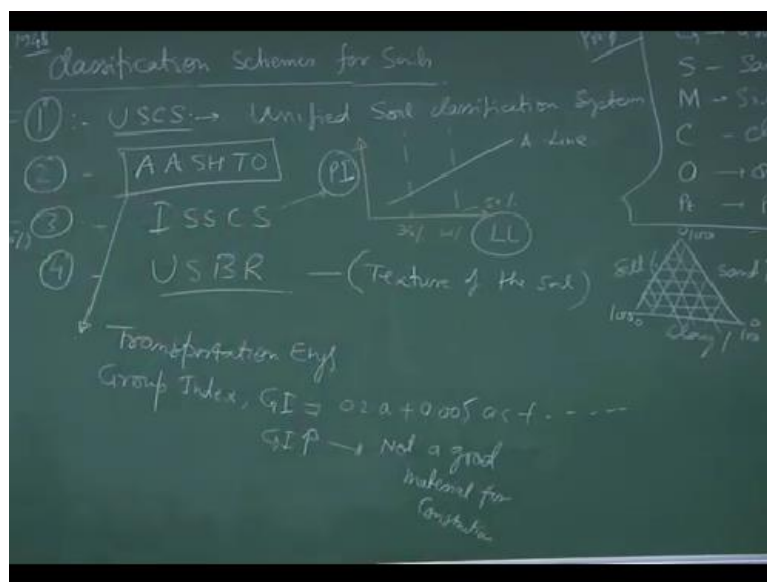 1948
Classification Schemes for Soils
① :- USCS :→ Unified Soil classification System
② - AASHTO
③ - ISSCS
④ - USBR — (Texture of the soil)
PI
A-Line
35%
50%
LL
S - Sa
M →
C - cl
O →
Pt →
Silt
Sand
0
100
100
0
0
100
Clay
Transportation Engg
Group Index, GI = 0.2a + 0.005ac + ------
GI ↑ → Not a good
material for
Construction